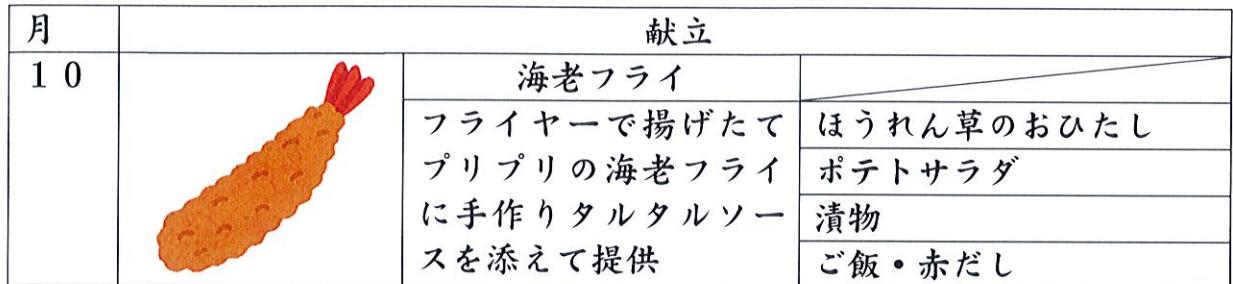 月
献立
10
海老フライ
フライヤーで揚げたて
プリプリの海老フライ
に手作りタルタルソー
スを添えて提供
ほうれん草のおひたし
ポテトサラダ
漬物
ご飯・赤だし